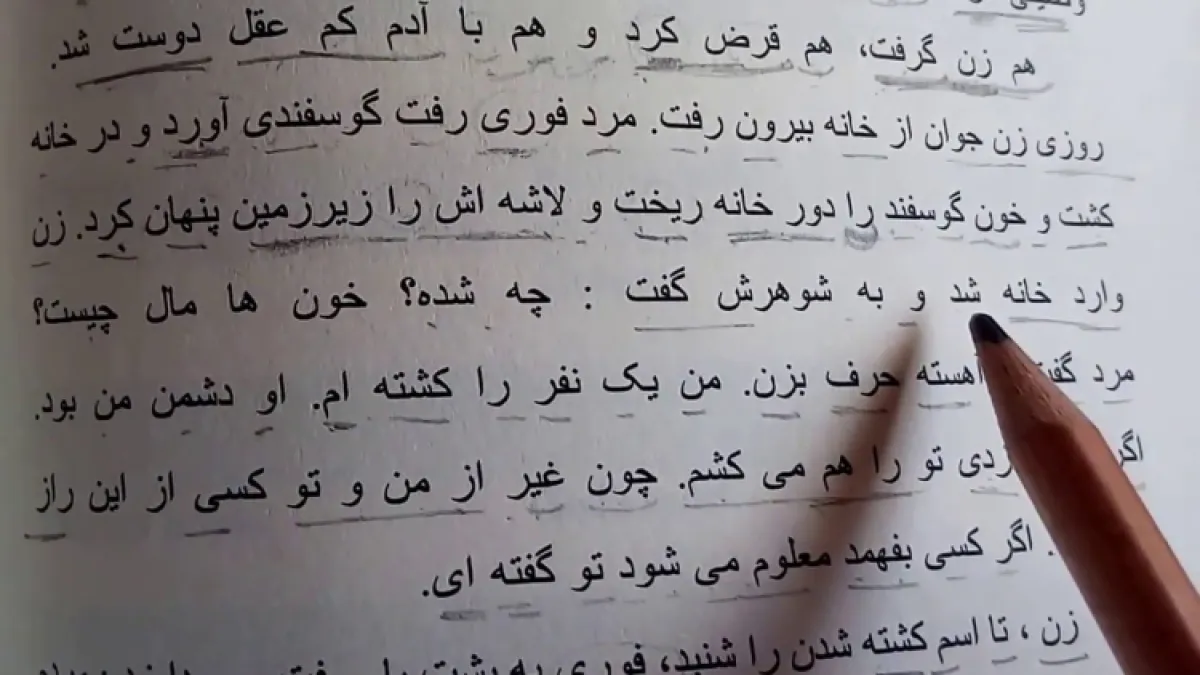 هم زن گرفت، هم قرض کرد و هم با آدم کم عقل دوست شد.
روزی زن جوان از خانه بیرون رفت. مرد فوری رفت گوسفندی آورد و در خانه
کشت و خون گوسفند را دور خانه ریخت و لاشه اش را زیرزمین پنهان کرد. زن
وارد خانه شد و به شوهرش گفت : چه شده؟ خون ها مال چیست؟
مرد حرف بزن. من یک نفر را کشته ام. او دشمن من بود.
تو را هم می کشم. چون غیر از من و تو کسی از این راز
. اگر کسی بفهمد معلوم می شود تو گفته ای.
زن ، تا اسم کشته شدن را شنید، فوری به پشت